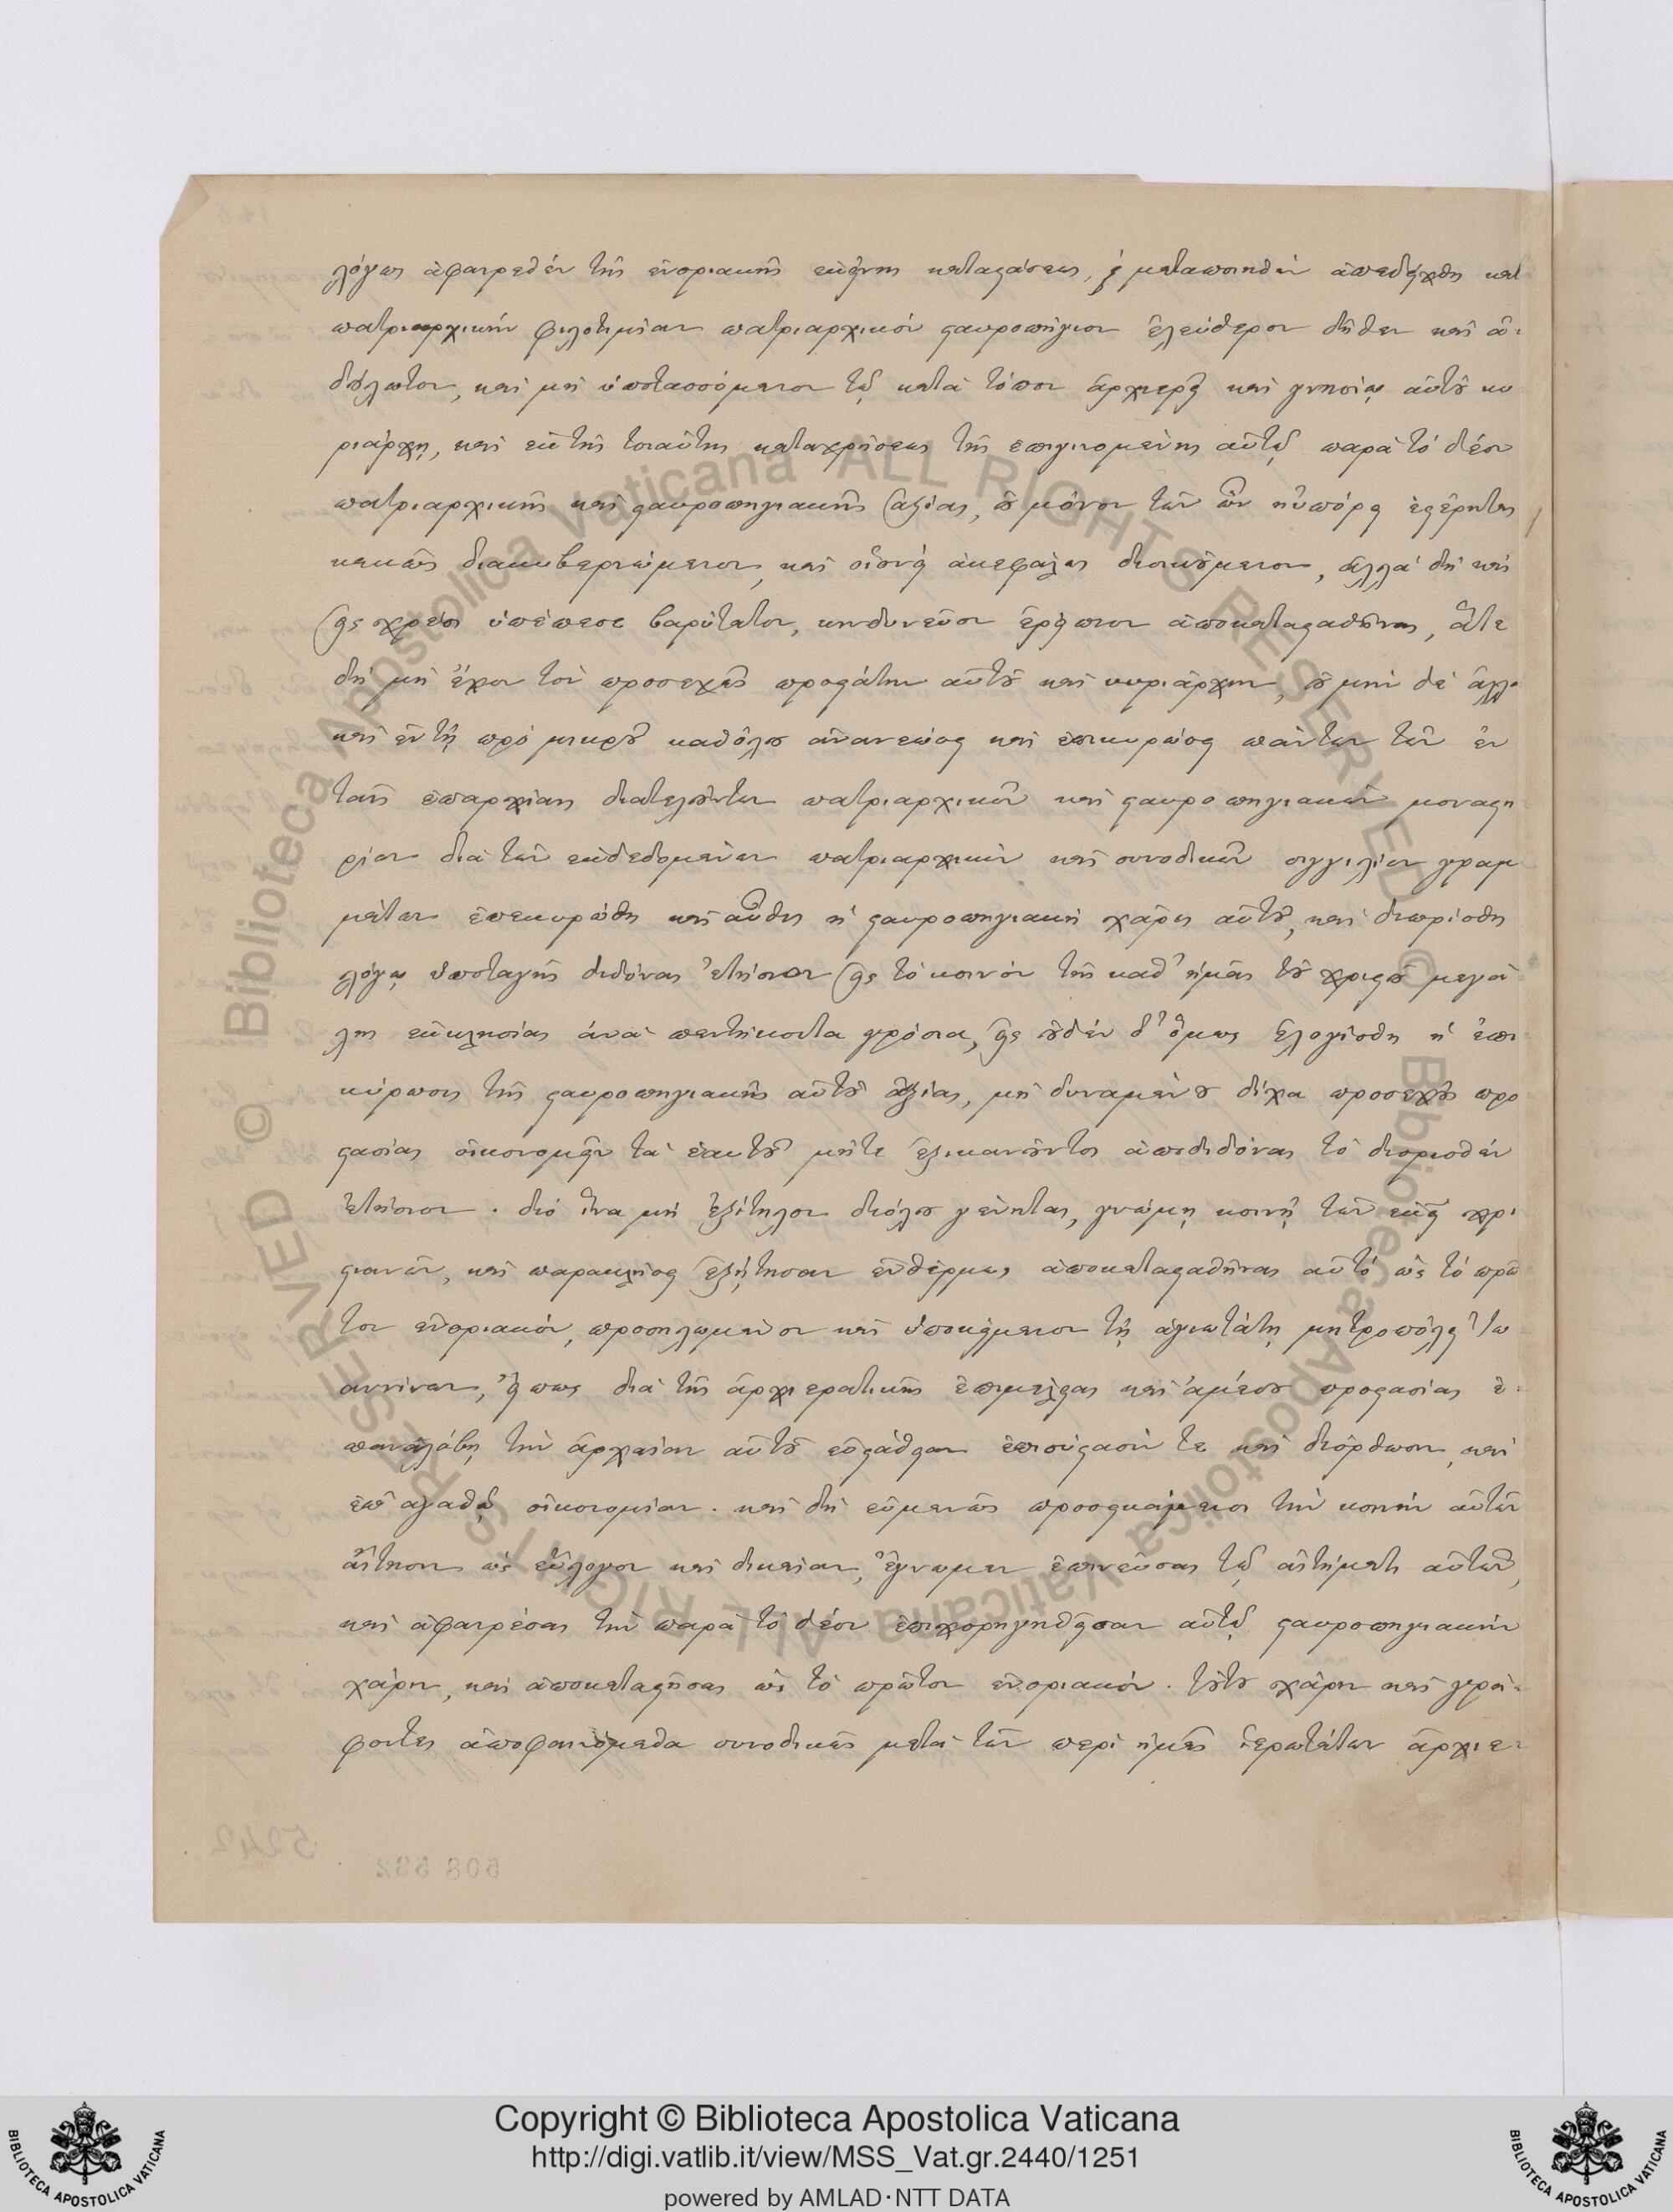 λόγως ἀφαιρεθὲν τῆς ἐνοριακῆς ἐκείνης καταστάσεως, καὶ μεταποιηθὲν ἀπεδείχθη κατὰ
πατριαρχικὴν φιλοτιμίαν πατριαρχικὸν σταυροπήγιον ἐλεύθερον δῆθεν καὶ ἀ-
δούλωτον, καὶ μὴ ὑποτασσόμενον τῷ κατὰ τόπον ἀρχιερεῖ καὶ γνησίῳ αὐτοῦ κυ
ριάρχῃ, καὶ ἐκ τῆς τοιαύτης καταχρήσεως τῆς ἐπιγινομένης αὐτῷ παρὰ τὸ δέον
πατριαρχικῆς καὶ σταυροπηγιακῆς ἀξίας, οὐ μόνον τῶν ὧν ηὐπόρει ἐστέρηται
κακῶς διακυβερνώμενον, καὶ οἱονεὶ ἀκεφάλως διοικούμενον, ἀλλὰ δὴ καὶ
εἰς χρέος ὑπέπεσε βαρύτατον, κινδυνεῦον ἔρειπιον ἀποκατασταθῆναι, ἅτε
δὴ μὴ ἔχον τὸν προσεχῆ προστάτην αὐτοῦ καὶ κυριάρχην, οὐ μὴν δὲ ἀλλὰ
καὶ ἐν τῇ πρὸ μικροῦ καθόλου ἀνανεώσει καὶ ἐπικυρώσει πάντων τῶν ἐν
ταῖς ἐπαρχίαις διατελούντων πατριαρχικῶν καὶ σταυροπηγιακῶν μοναστη
ρίων διὰ τῶν ἐκδεδομένων πατριαρχικῶν καὶ συνοδικῶν σιγγιλίων γραμ
μάτων ἐπεκυρώθη καὶ αὖθις ἡ σταυροπηγιακὴ χάρις αὐτοῦ, καὶ διωρίσθη
λόγῳ ὑποταγῆς διδόναι ἐτήσιον εἰς τὸ κοινὸν τῆς καθ' ἡμᾶς τοῦ χριστοῦ μεγά
λης ἐκκλησίας ἀνὰ πεντήκοντα γρόσια, εἰς οὐδὲν δ' ὅμως ἐλογίσθη ἡ ἐπι
κύρωσις τῆς σταυροπηγιακῆς αὐτοῦ ἀξίας, μὴ δυναμένου δίχα προσεχοῦς προ
στασίας οἰκονομεῖν τὰ ἑαυτοῦ μήτε ἐξικανοῦντος ἀποδιδόναι τὸ διορισθὲν
ἐτήσιον. διὸ ἵνα μὴ ἐξίτηλον διόλου γένηται, γνώμῃ κοινῇ τῶν ἐκεῖ χρι
στιανῶν, καὶ παρακλήσει ἐξῄτησαν ἐνθέρμως ἀποκατασταθῆναι αὐτὸ ὡς τὸ πρῶ
τον ἐνοριακὸν, προσηλωμένον καὶ ὑποκείμενον τῇ ἁγιωτάτῃ μητροπόλει Ἰω
αννίνων, ὅπως διὰ τῆς ἀρχιερατικῆς ἐπιμελείας καὶ ἀμέσου προστασίας ἐ-
παναλάβῃ τὴν ἀρχαίαν αὐτοῦ εὐστάθειαν ἐπισύστασίν τε καὶ διόρθωσιν, καὶ
ἐπ' ἀγαθῷ οἰκονομίαν. καὶ δὴ εὐμενῶς προσηκάμενοι τὴν κοινὴν αὐτῶν
αἴτησιν ὡς εὔλογον καὶ δικαίαν, ἔγνωμεν ἐπινεῦσαι τῷ αἰτήματι αὐτῶν,
καὶ ἀφαιρέσαι τὴν παρὰ τὸ δέον ἐπιχορηγηθεῖσαν αὐτῷ σταυροπηγιακὴν
χάριν, καὶ ἀποκαταστῆσαι ὡς τὸ πρῶτον ἐνοριακόν. τούτου χάριν καὶ γρά-
φοντες ἀποφαινόμεθα συνοδικῶς μετὰ τῶν περὶ ἡμᾶς ἱερωτάτων ἀρχιε-
Copyright © Biblioteca Apostolica Vaticana
http://digi.vatlib.it/view/MSS_Vat.gr.2440/1251
powered by AMLAD·NTT DATA
BIBLIOTECA APOSTOLICA VATICANA
BIBLIOTECA APOSTOLICA VATICANA